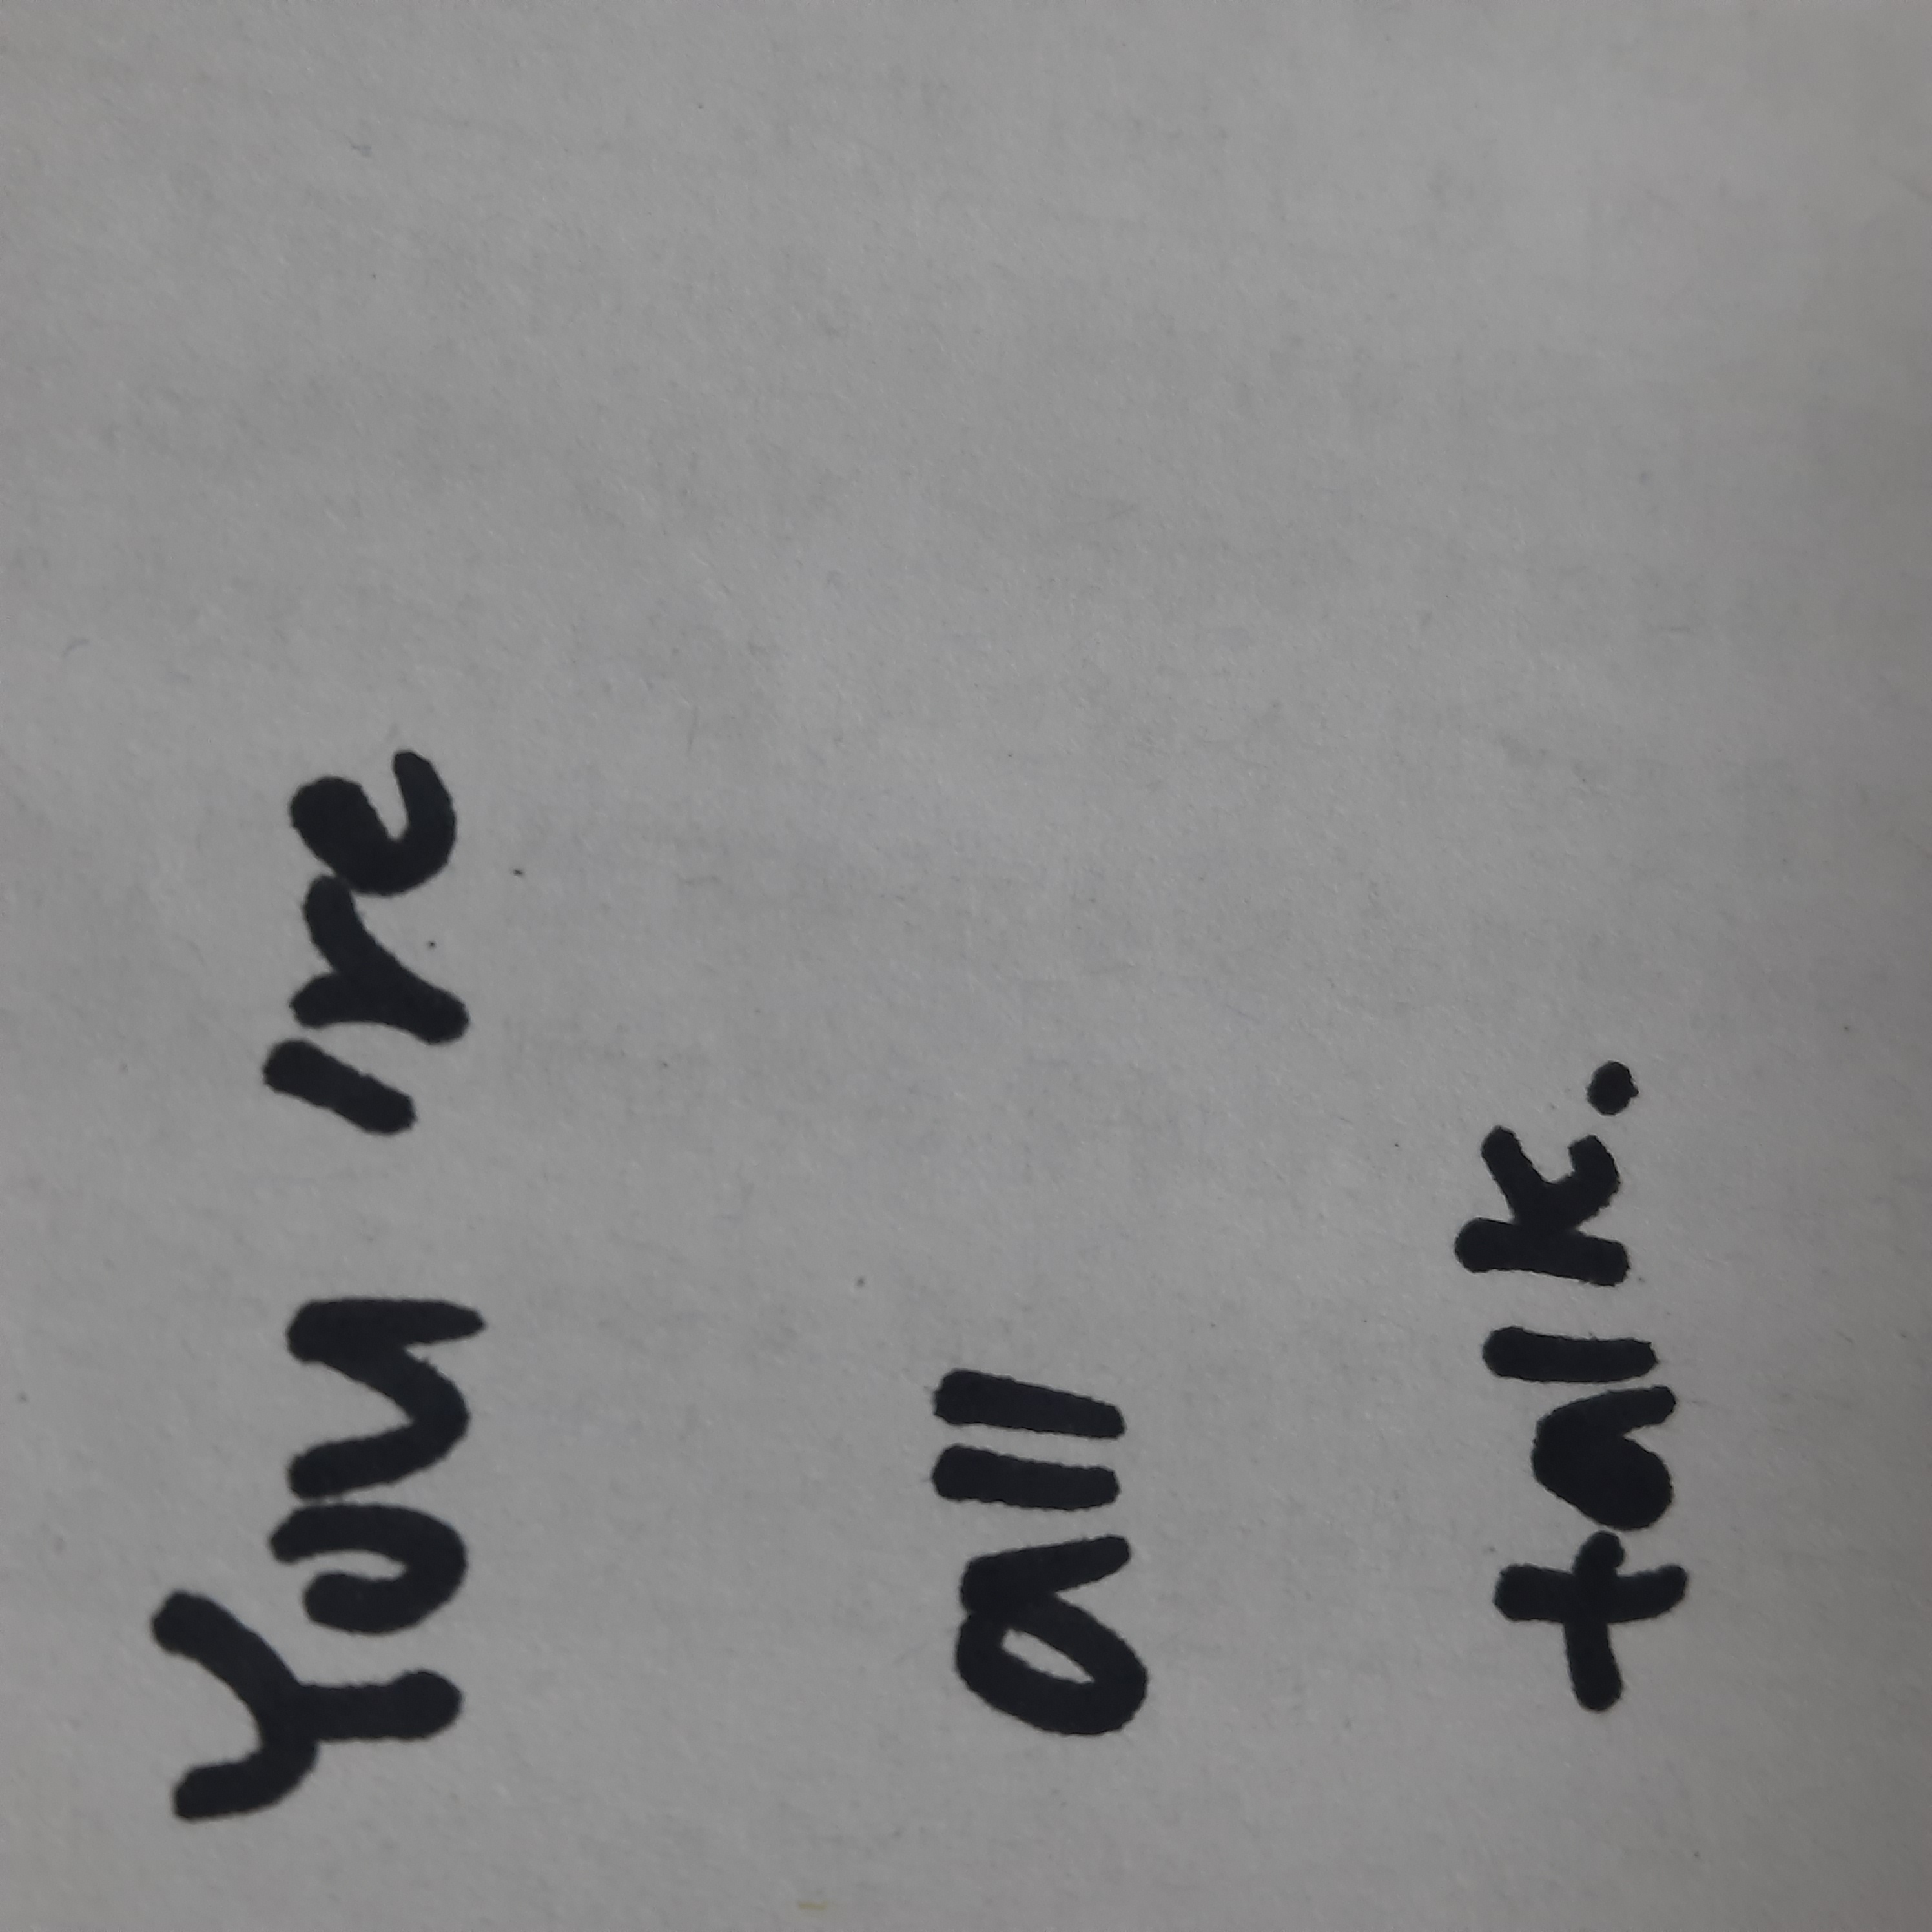 You're
all
talk.